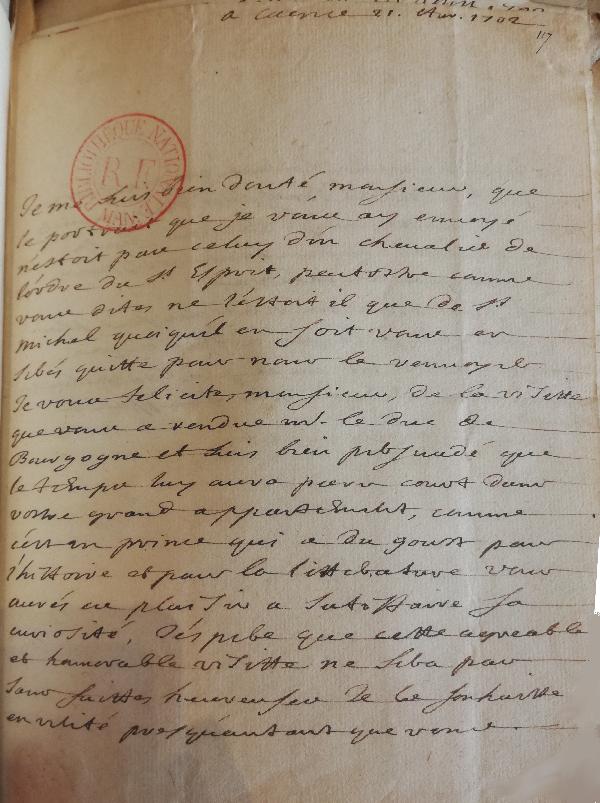 a Caene 21. Avr. 1702
117
BIBLIOTHEQUE NATIONALE
R.F.
Je me suis bien douté monsieur, que
le portrait que je vous ay envoyé
n'estoit pas celuy d'un chevalier de
l'ordre du St Esprit, peutestre comme
vous dites ne l'estoit il que de St
michel quoiqu'il en soit vous en
serés quitte pour nous le renvoyer
Je vous felicite, monsieur, de la visitte
que vous a rendue mr. le duc de
Bourgogne et suis bien persuadé que
le temps luy aura paru court dans
vostre grand appartement, comme
c'est un prince qui a du goust pour
l'histoire et pour la litterature vous
aurés eu plaisir a satisfaire sa
curiosité, J'espere que cette agreable
et honorable visitte ne sera pas
sans suittes heureuses je le souhaitte
en verité presqu'autant que vous.